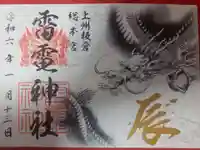 上州板倉
総本宮
雷電神社
令和六年一月十三日
辰